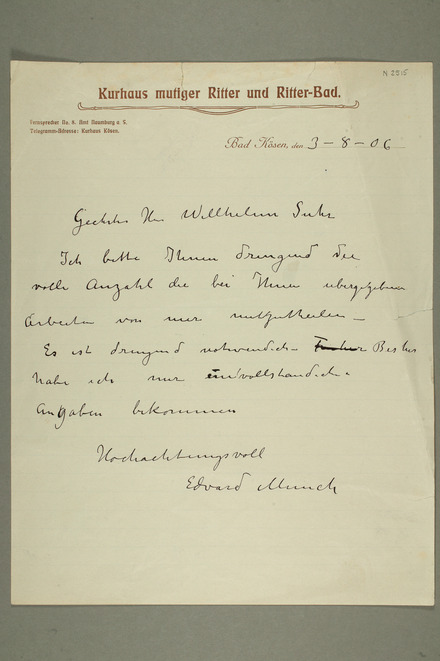 N 2315
Kurhaus mutiger Ritter und Ritter-Bad.
Fernsprecher No. 8. Amt Naumburg a. S.
Telegramm-Adresse: Kurhaus Kösen.
Bad Kösen, den 3 – 8 – 06
Geehrter Herr Willhelm Suhr
Ich bitte Ihnen dringend die
volle Anzahl die bei Ihnen übergegebenen
Arbeiten von mir mitzutheilen –
Es ist dringend nothwendich – Bisher
habe ich nur undvollständiche
Angaben bekommen
Hochachtungsvoll
Edvard Munch